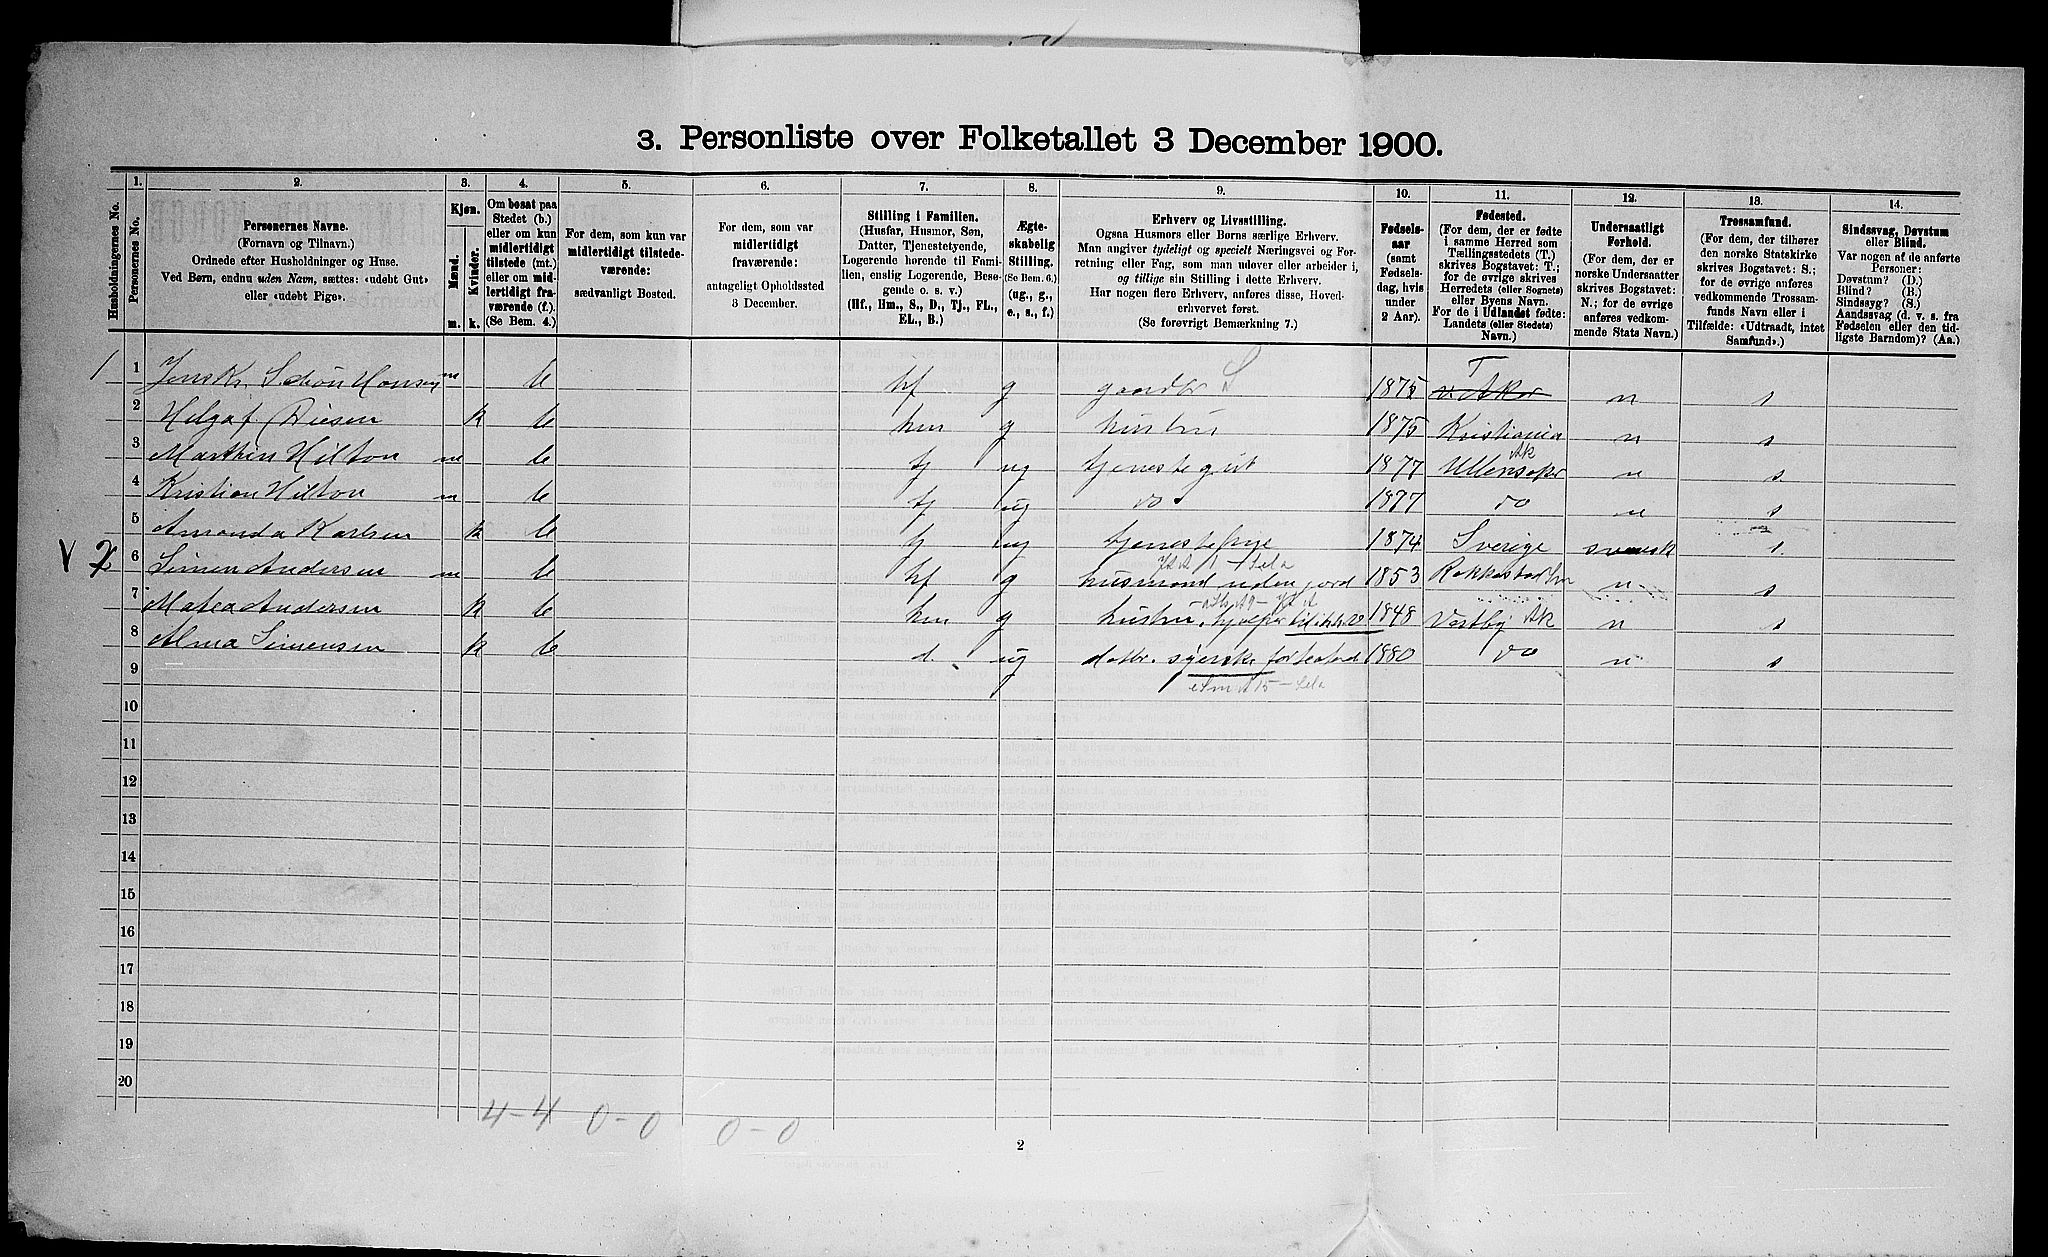 3. Personliste over Folketallet 3 December 1900.
Husholdningernes No.
1.
Personernes No.
2.
Personernes Navne.
(Fornavn og Tilnavn.)
Ordnede efter Husholdninger og Huse.
Ved Børn, endnu uden Navn, sættes: «udøbt Gut»
eller «udøbt Pige».
3.
Kjøn.
Mænd.
Kvinder.
m.
k.
4.
Om bosat paa
Stedet (b.)
eller om kun
midlertidigt
tilstede (mt.)
eller om mid-
lertidigt fra-
værende (f.)
(Se Bem. 4.)
5.
For dem, som kun var
midlertidigt tilstede-
værende:
sædvanligt Bosted.
6.
For dem, som var
midlertidigt
fraværende:
antageligt Opholdssted
3 December.
7.
Stilling i Familien.
(Husfar, Husmor, Søn,
Datter, Tjenestetyende,
Logerende hørende til Fami-
lien, enslig Logerende, Besø-
gende o. s. v.)
(Hf., Hm., S., D., Tj., FL.,
EL., B.)
8.
Ægte-
skabelig
Stilling.
(Se Bem. 6.)
(ug., g.,
e., s., f.)
9.
Erhverv og Livsstilling.
Ogsaa Husmors eller Børns særlige Erhverv.
Man angiver tydeligt og specielt Næringsvei og For-
retning eller Fag, som man udøver eller arbeider i,
og tillige sin Stilling i dette Erhverv.
Har nogen flere Erhverv, anføres disse, Hoved-
erhvervet først.
(Se forøvrigt Bemærkning 7.)
10.
Fødsels-
aar
(samt
Fødsels-
dag, hvis
under
2 Aar).
11.
Fødested.
(For dem, der er fødte
i samme Herred som
Tællingsstedets (T.)
skrives Bogstavet: T.;
for de øvrige skrives
Herredets (eller Sognets)
eller Byens Navn.
For de i Udlandet fødte:
Landets (eller Stedets)
Navn.)
12.
Undersaatligt
Forhold.
(For dem, der er
norske Undersaatter
skrives Bogstavet:
N.; for de øvrige
anføres vedkom-
mende Stats Navn.)
13.
Trossamfund.
(For dem, der tilhører
den norske Statskirke
skrives Bogstavet: S.;
for de øvrige anføres
vedkommende Trossam-
funds Navn eller i
Tilfælde: «Udtraadt, intet
Samfund».)
14.
Sindssvag, Døvstum
eller Blind.
Var nogen af de anførte
Personer:
Døvstum? (D.)
Blind? (B.)
Sindssyg? (S.)
Aandssvag (d. v. s. fra
Fødselen eller den tid-
ligste Barndom)? (Aa.)
1 1 Jens Kr. Schiøn Hansen m b hf g gaardbr S 1875 T n s
2 Helga f. Diesen k b hm g hustru 1875 Kristiania n s
3 Marthin Hilton m b tj ug tjenestegut 1877 Ullensaker Ak n s
4 Kristian Hilton m b tj ug do 1877 do n s
5 Amanda Karlsen k b tj ug tjenestepige 1874 Sverige svensk s.
V 2 6 Simen Andersen m b hf g husmand uden jord 1853 Rakkestad n s
7 Matea Andersen k b hm g hustru, hjælper til 1848 Vestby Ak n s
8 Alma Simensen k b d. ug datter. syerske 1880 do n s
9
10
11
12
13
14
15
16
17
18
19
20
4-4 0-0 0-0
2